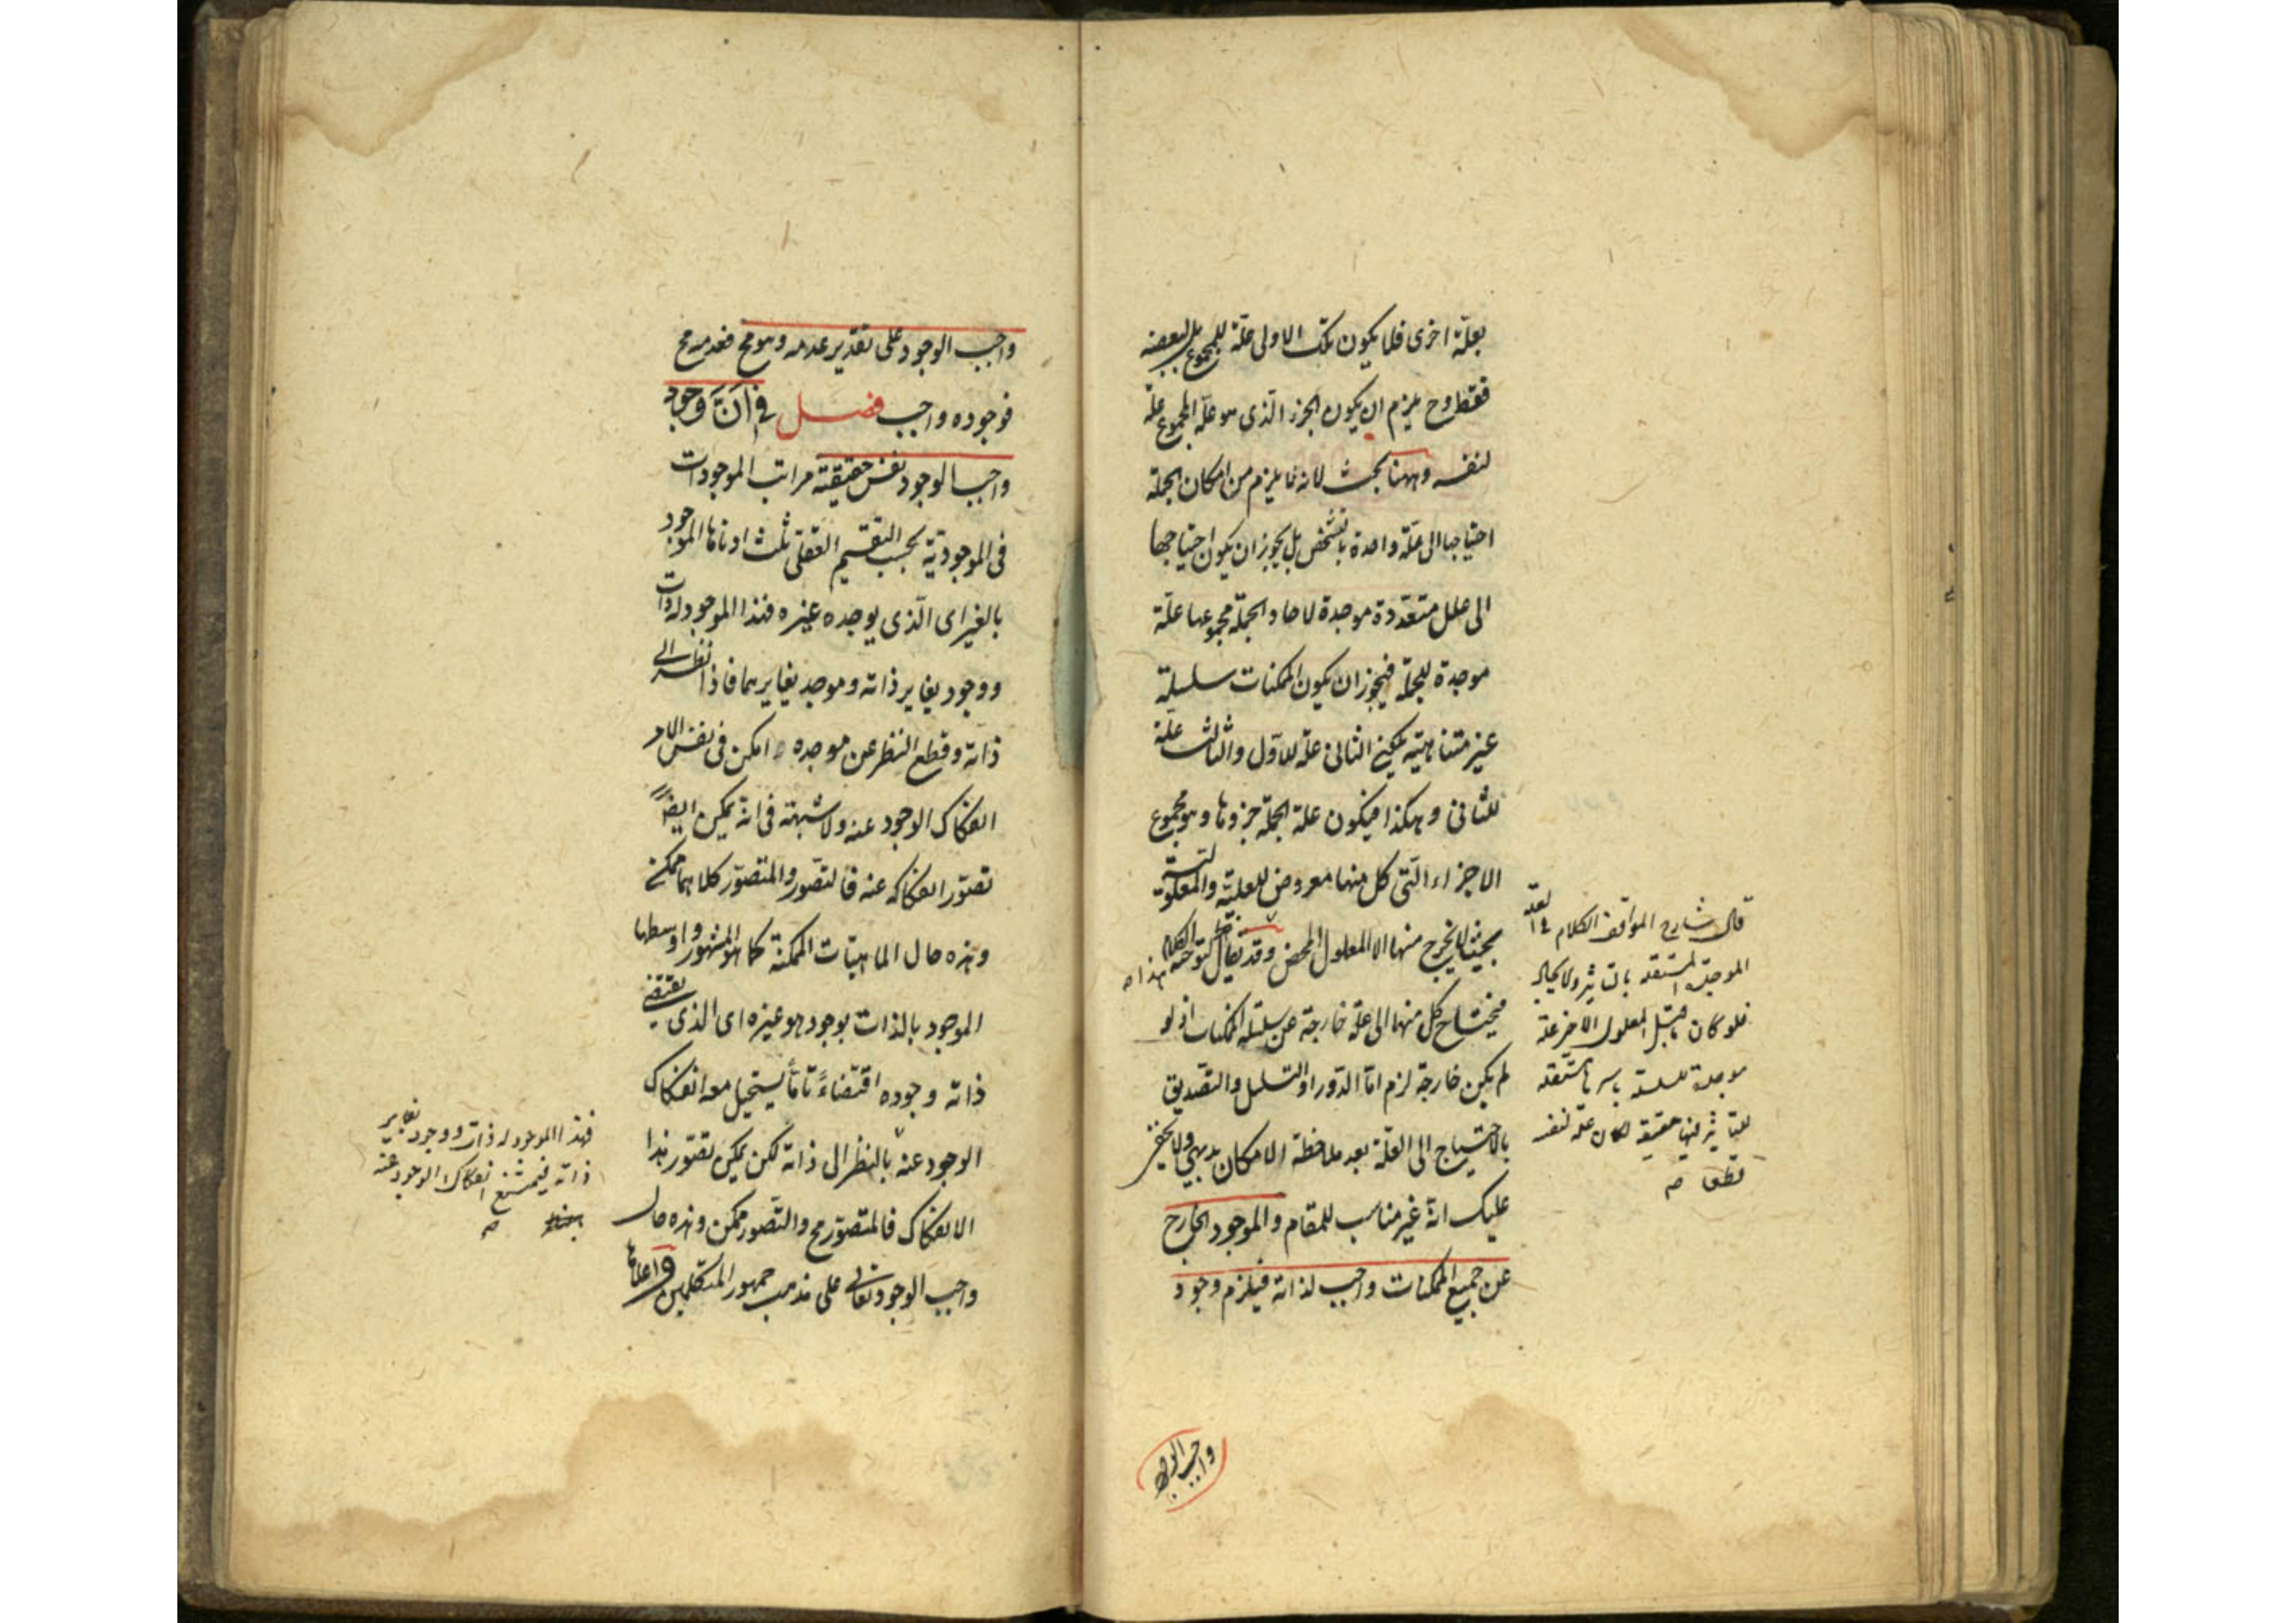 بعلّة اخرى فلا يكون تلك الاولى علّة للمجموع بل لبعضه
فقط وح يلزم ان يكون الجزء الّذى هو علّة المجموع علّة
لنفسه وههنا بحث لانه لا يلزم من امكان الجملة
احتياجها الى علّة واحدة بالشخص بل يجوز ان يكون احتياجها
الى علل متعدّدة موجدة لاحاد الجملة مجموعها علّة
موجدة للجملة فيجوز ان يكون الممكنات سلسلة
غير متناهية يكون الثانى علة للاوّل والثالث علّة
للثانى وهكذا فيكون علة الجملة جزوها وهو مجموع
الاجزاء الّتى كل منها معروض للعليّة والمعلوليّة
بحيث لا يخرج منها الا المعلول المحض وقد يقال لتوجيه الكلام
هذا
فيحتاج كل منها الى علّة خارجة عن سلسلة الممكنات اذ لو
لم يكن خارجة لزم امّا الدّور او التسلسل والتصديق
بالاحتياج الى العلّة بعد ملاحظة الامكان بديهى ولا يخفى
عليك انه غير مناسب للمقام والموجود الخارج
عن جميع الممكنات واجب لذاته فيلزم وجود
واجب الوجود
قال شارح المواقف الكلام فى العلّة
الموجدة المستقلة بالتأثير والايجاد
فلو كان ما قبل المعلول الاخير علة
موجدة للسلسلة باسرها مستقلة
بالتأثير فيها حقيقة لكان علة لنفسه
قطعا
واجب الوجود على تقدير عدمه وهو مح فعدمه مح
فوجوده واجب فصل فى انّ وجود
واجب الوجود نفس حقيقته مراتب الموجودات
فى الموجوديّة بحسب التقسيم العقلى ثلث ادناها الموجود
بالغير اى الّذى يوجده غيره فهذا الموجود له ذات
ووجود يغاير ذاته وموجد يغايرهما فاذا نظر الى
ذاته وقطع النظر عن موجده امكن فى نفس الامر
انفكاك الوجود عنه ولا شبهة فى انه يمكن ايضاً
تصوّر انفكاكه عنه فالتصوّر والمتصوّر كلاهما ممكن
وهذه حال الماهيّات الممكنة كما هو المشهور واوسطها
الموجود بالذات بوجود هو غيره اى الذى يقتضى
ذاته وجوده اقتضاءً تامّاً يستحيل معه انفكاك
الوجود عنه بالنظر الى ذاته لكن يمكن تصوّر هذا
الانفكاك فالمتصوّر مح والتصوّر ممكن وهذه حال
واجب الوجود تعالى على مذهب جمهور المتكلمين واعلاها
فهذا الموجود له ذات ووجود يغاير
ذاته فيمتنع انفكاك الوجود عنه